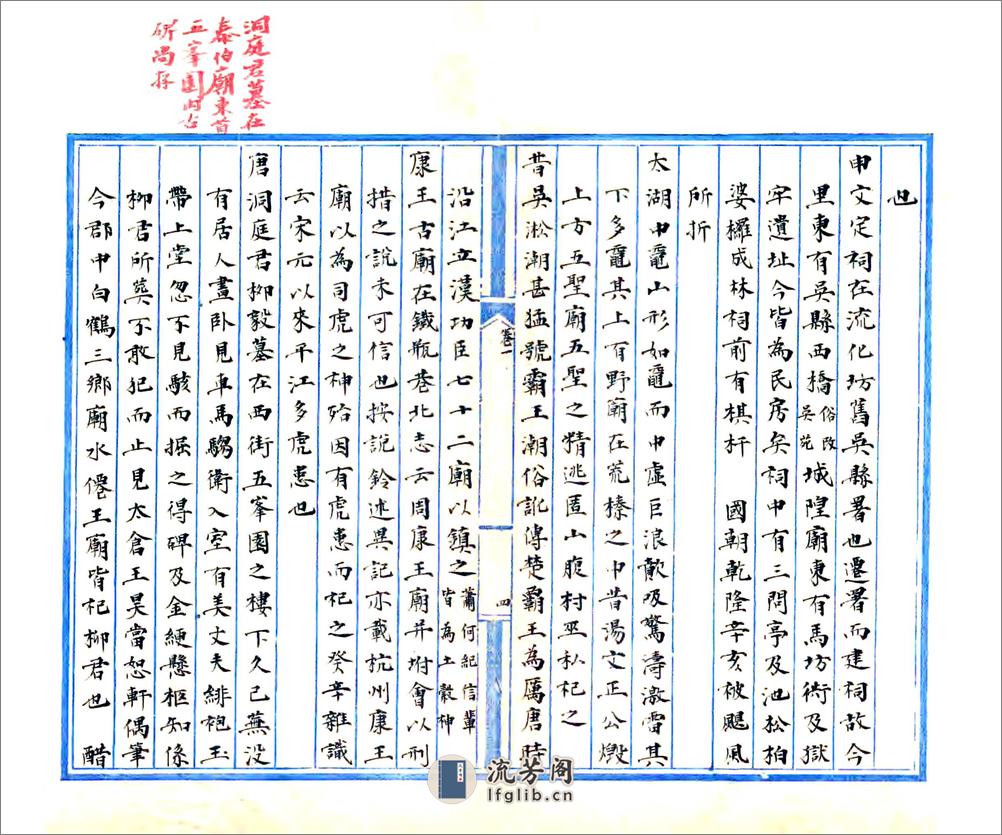 洞庭君墓在
泰伯廟東首
五峯園内古
碑尚存
也
申文定祠在流化坊舊吳縣署也遷署而建祠故今
里東有吳縣西橋俗改吳苑城隍廟東有馬坊衖及獄
牢遺址今皆為民房矣祠中有三問亭及池松柏
婆欏成林祠前有棋杆 國朝乾隆辛亥被颶風
所折
太湖中黿山形如黿而中虛巨浪歕吸驚濤激雷其
下多黿其上有野廟在荒榛之中昔湯文正公燬
上方五聖廟五聖之精逃匿山腹村巫私祀之
昔吳淞潮甚猛號霸王潮俗訛傳楚霸王為厲唐時
卷一
四
沿江立漢功臣七十二廟以鎮之蕭何紀信輩皆為土穀神
康王古廟在鐵瓶巷北志云周康王廟并坿會以刑
措之說未可信也按說鈴述異記亦載杭州康王
廟以為司虎之神殆因有虎患而祀之癸辛雜識
云宋元以來平江多虎患也
唐洞庭君柳毅墓在西街五峯園之樓下久已蕪没
有居人晝卧見車馬騶衛入室有美丈夫緋袍玉
帶上堂忽不見駭而掘之得碑及金綆懸柩知係
柳君所葬不敢犯而止見太倉王昊當恕軒偶筆
今郡中白鶴三鄉廟水僊王廟皆祀柳君也 醋
流芳阁
lfglib.cn